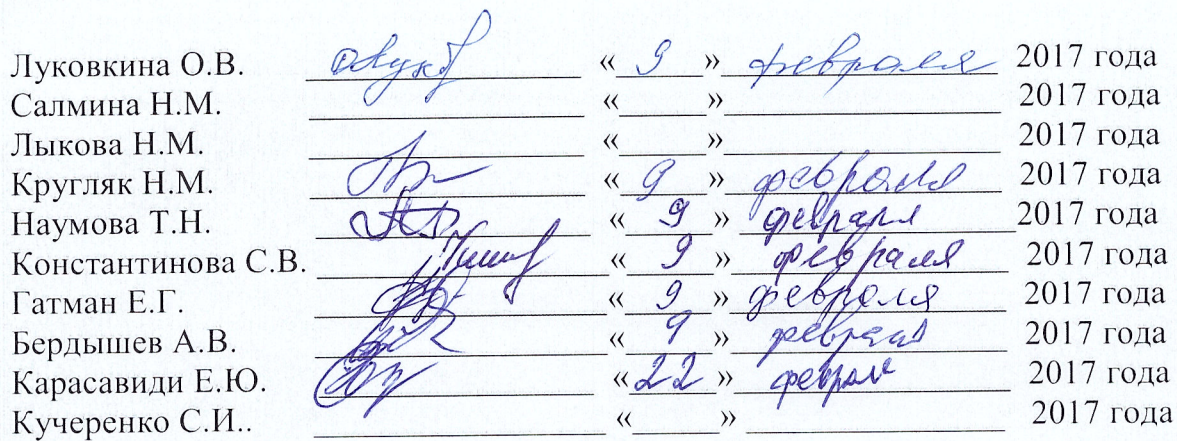 Луковкина О.В. «9» февраля 2017 года
Салмина Н.М. «» 2017 года
Лыкова Н.М. «» 2017 года
Кругляк Н.М. «9» февраля 2017 года
Наумова Т.Н. «9» февраля 2017 года
Константинова С.В. «9» февраля 2017 года
Гатман Е.Г. «9» февраля 2017 года
Бердышев А.В. «9» февраля 2017 года
Карасавиди Е.Ю. «22» феврал 2017 года
Кучеренко С.И.. «» 2017 года